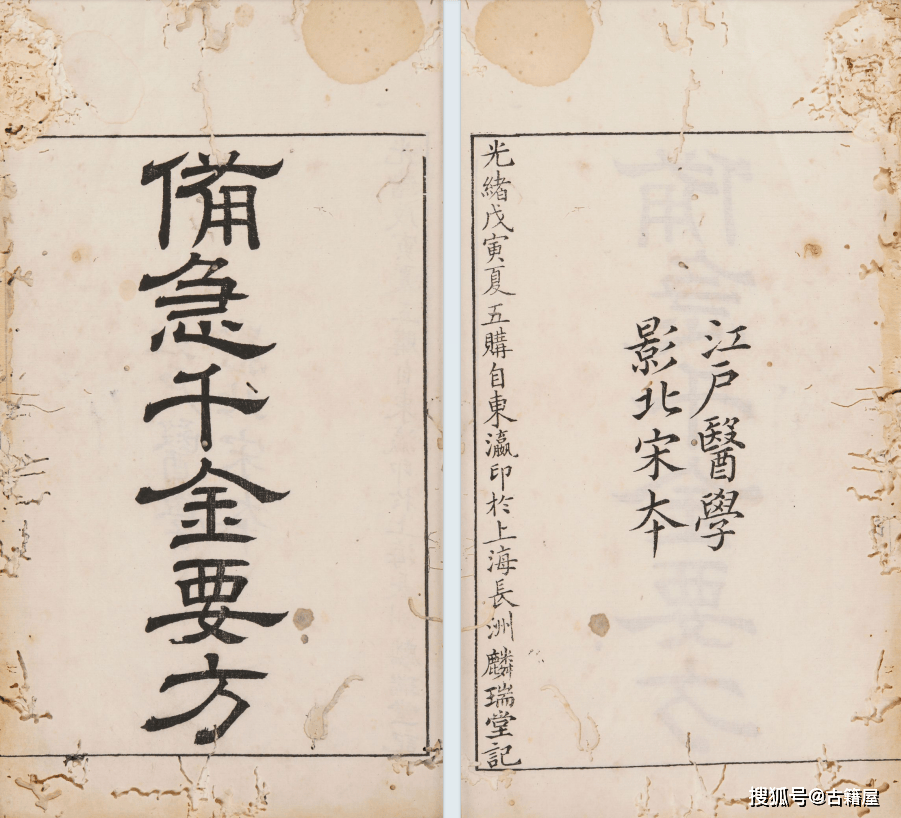 備急千金要方
江戶醫學
影北宋本
光緒戊寅夏五購自東瀛印於上海長洲麟瑞堂記
搜狐号@古籍屋